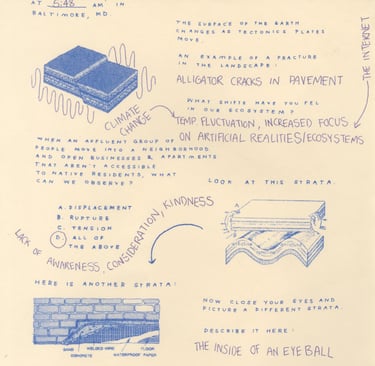 AT 5:48 AM IN
BALTIMORE, MD
THE SURFACE OF THE EARTH
CHANGES AS TECTONICS PLATES
MOVE.
AN EXAMPLE OF A FRACTURE
IN THE LANDSCAPE:
ALLIGATOR CRACKS IN PAVEMENT
THE INTERNET
WHAT SHIFTS HAVE YOU FELT
IN OUR ECOSYSTEM?
CLIMATE
CHANGE
TEMP FLUCTUATION, INCREASED FOCUS
ON ARTIFICIAL REALITIES/ECOSYSTEMS
WHEN AN AFFLUENT GROUP OF
PEOPLE MOVE INTO A NEIGHBORHOOD
AND OPEN BUSINESSES & APARTMENTS
THAT AREN'T ACCESSIBLE
TO NATIVE RESIDENTS, WHAT
CAN WE OBSERVE?
A. DISPLACEMENT
B. RUPTURE
C. TENSION
D. ALL OF
THE ABOVE
LACK OF AWARENESS, CONSIDERATION, KINDNESS
LOOK AT THIS STRATA.
A
HERE IS ANOTHER STRATA:
SAND
WELDED WIRE
FLOOR
CONCRETE
WATERPROOF PAPER
NOW CLOSE YOUR EYES AND
PICTURE A DIFFERENT STRATA.
DESCRIBE IT HERE:
THE INSIDE OF AN EYEBALL